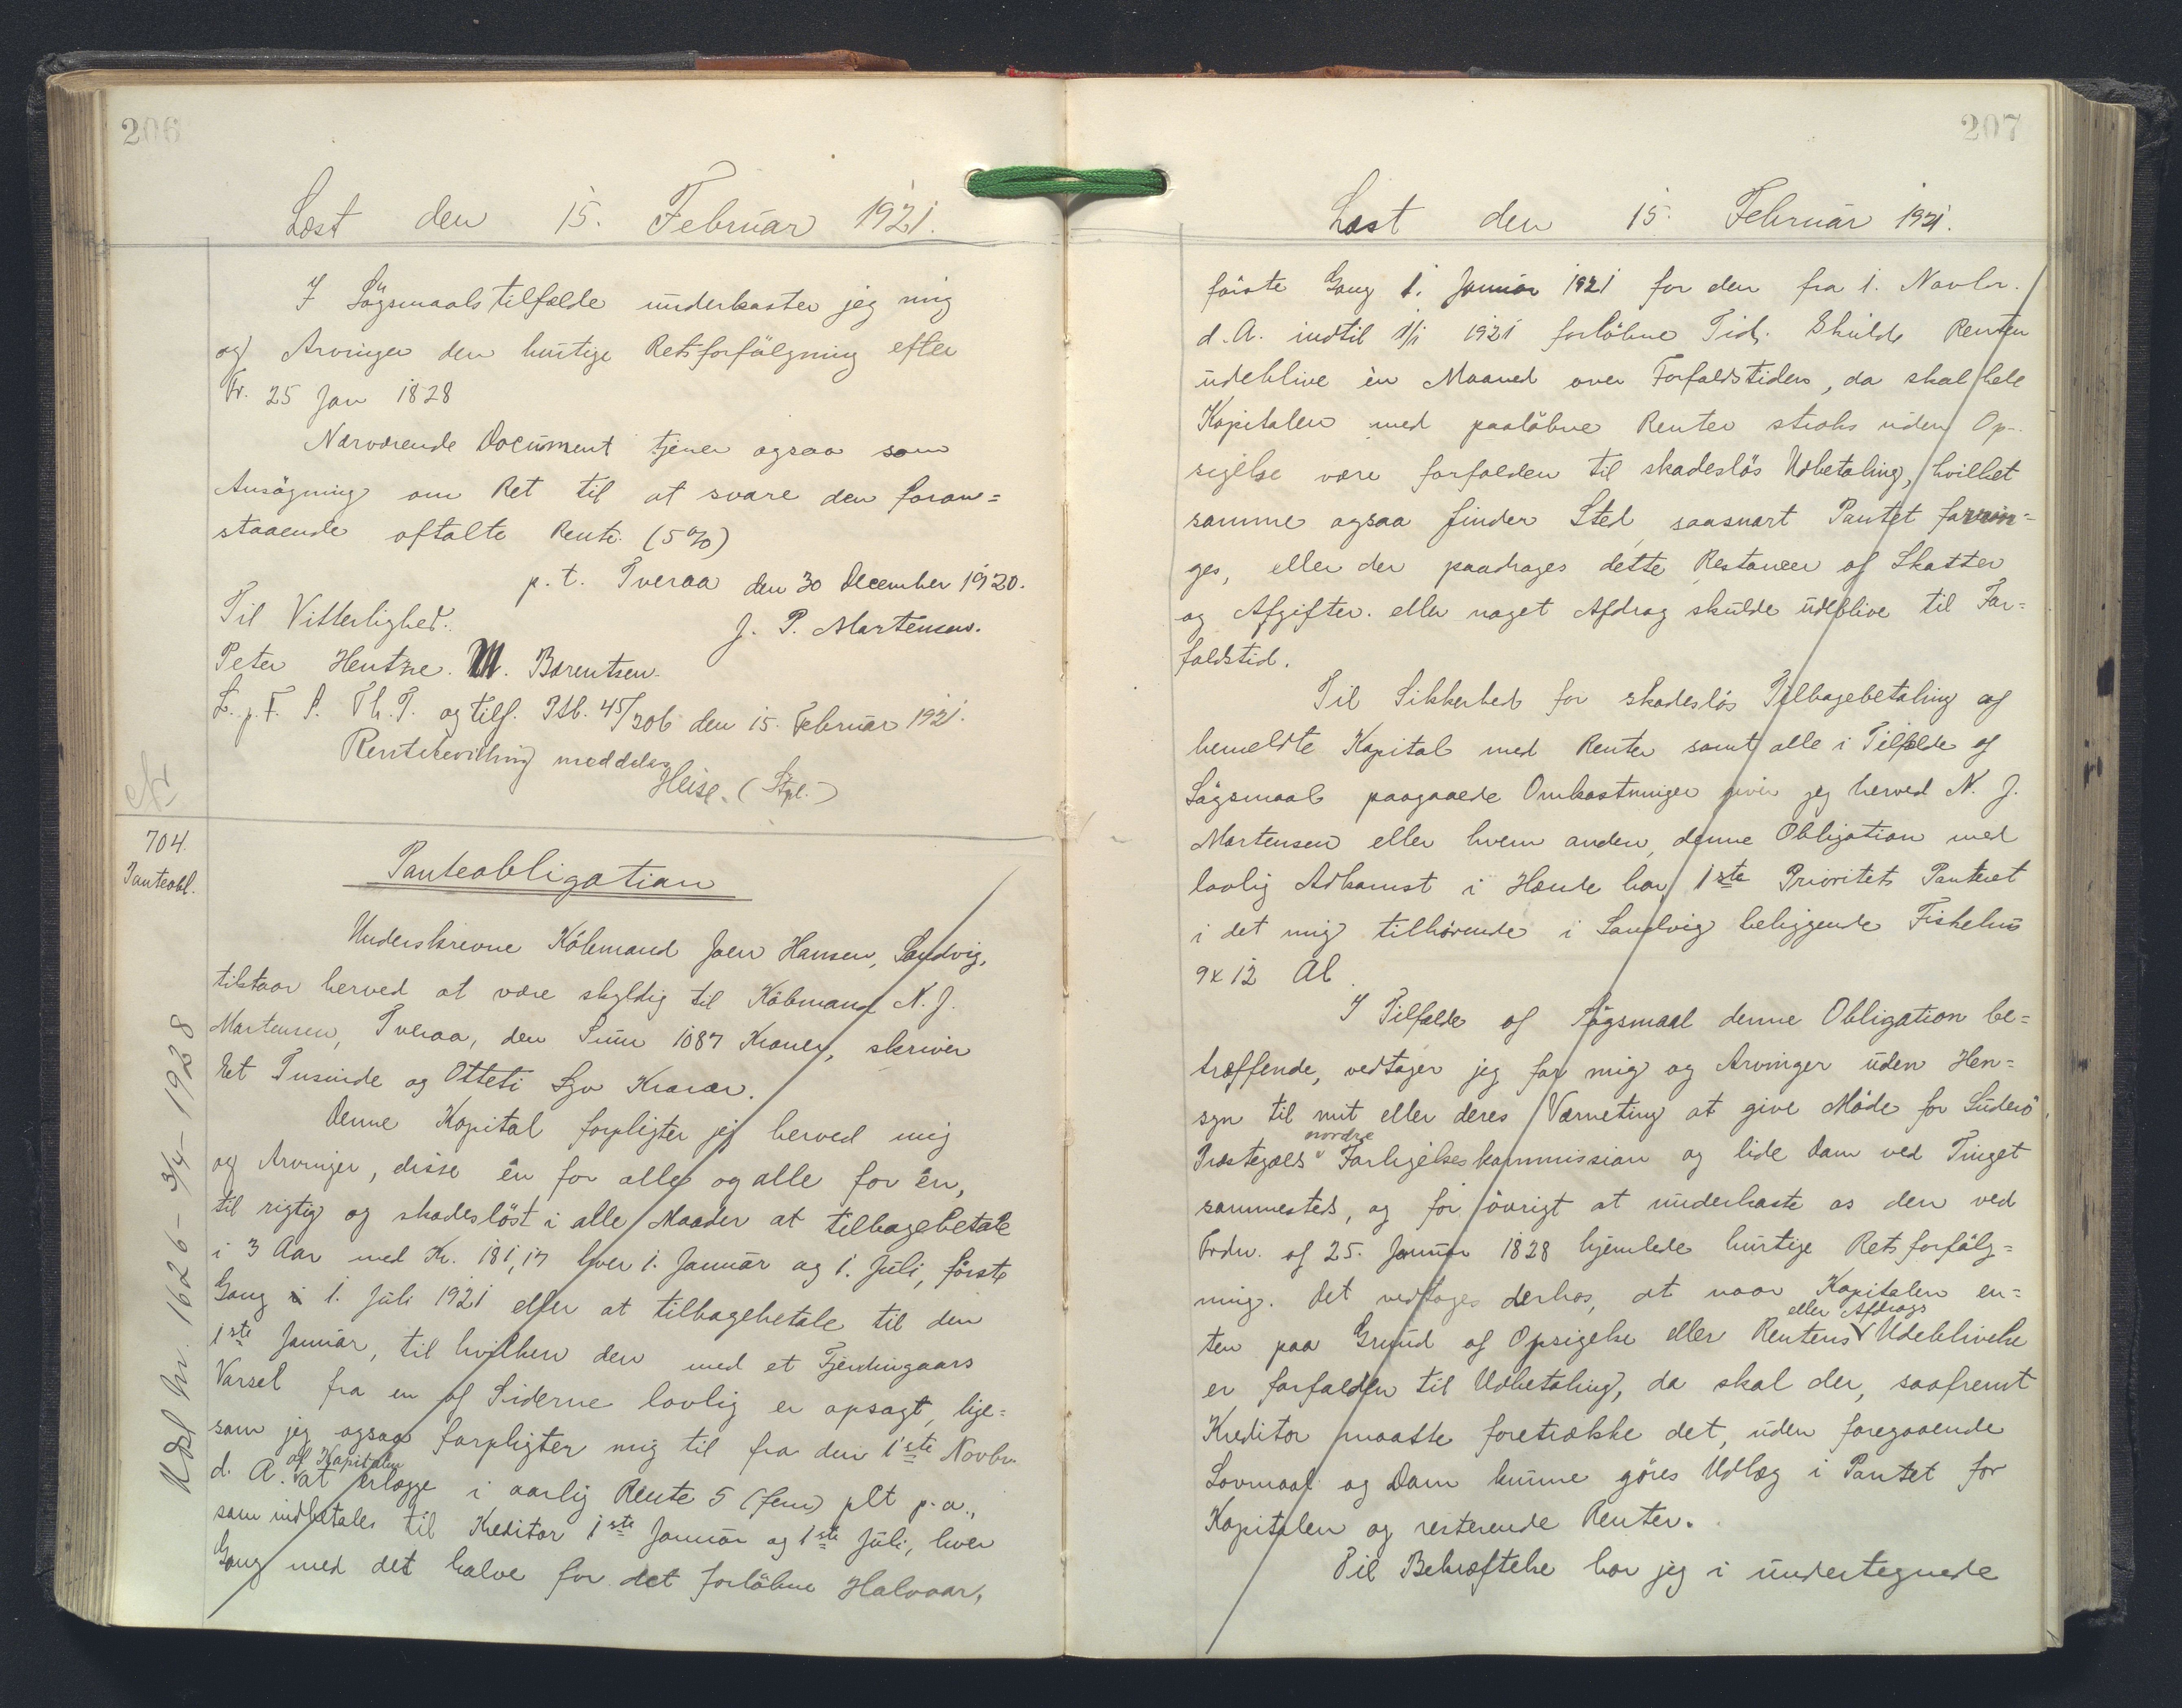 206
Læst den 15. Februar 1921.
I Sögsmaalstilfælde underkaster jeg mig
og Arvinger den hurtige Retsforfölgning efter
Fr. 25 Jan 1828
Nærværende Document tjener ogsaa som
Ansögning om Ret til at svare den foran=
staaende aftalte Rente (5%)
p. t. Tveraa den 30 December 1920.
Til Vitterlighed.
J. P. Martensen.
Peter Hentze. M. Bærentsen.
L. p. F. S. Th. P. og tilf. Ptb. 45/206 den 15. Februar 1921.
Rentebevilling meddeles
Heise. (Stpl.)
704.
Panteobl.
Panteobligation
Underskrevne Köbmand Joen Hansen, Sandvig,
tilstaar herved at være skyldig til Köbmand N. J.
Martensen, Tveraa, den Sum 1087 Kroner, skriver
Et Tusinde og Otteti Syv Kroner.
Denne Kapital forpligter jeg herved mig
og Arvinger, disse én for alle og alle for én,
til rigtig og skadeslöst i alle Maader at tilbagebetale
i 3 Aar med Kr. 181,17 hver 1. Januar og 1. Juli, förste
Gang 1. Juli 1921 eller at tilbagebetale til den
1ste Januar, til hvilken den med et Fjerdingaars
Varsel fra en af Siderne lovlig er opsagt, lige=
som jeg ogsaa forpligter mig til fra den 1ste Novbr.
af Kapitalen
d. A. at erlægge i aarlig Rente 5 (fem) pCt p. a.,
som indbetales til Kreditor 1ste Januar og 1ste Juli, hver
Gang med det halve for det forlöbne Halvaar,
Udsl Nr. 1626 - 3/4 - 1928
207
Læst den 15. Februar 1921.
förste Gang 1. Januar 1921 for den fra 1. Novbr.
d. A. indtil 1/1 1921 forlöbne Tid. Skulde Renten
udeblive én Maaned over Forfaldstiden, da skal hele
Kapitalen med paalöbne Renter straks uden Op-
sigelse være forfalden til skadeslös Udbetaling, hvilket
samme ogsaa finder Sted, saasnart Pantet forrin=
ges, eller der paadrages dette Restancer af Skatter
og Afgifter. eller noget Afdrag skulde udeblive til For=
faldstid.
Til Sikkerhed for skadeslös Tilbagebetaling af
bemeldte Kapital med Renter samt alle i Tilfælde af
Sögsmaal paagaaede Omkostninger giver jeg herved N. J.
Martensen eller hvem anden, denne Obligation med
lovlig Adkomst i Hænde har, 1ste Prioritets Panteret
i det mig tilhörende i Sandvig beliggende Fiskehus
9x12 Al.
I Tilfælde af Sögsmaal denne Obligation be=
træffende, vedtager jeg for mig og Arvinger uden Hen=
syn til mit eller deres Værneting at give Möde for Suderö
nordre
Præstegælds Forligelseskommission og lide Dom ved Tinget
sammesteds, og for övrigt at underkaste os den ved
Frdn. af 25. Januar 1828 hjemlede hurtige Retsforfölg=
ning. Det vedtages derhos, at naar Kapitalen en=
eller Afdrags
ten paa Grund af Opsigelse eller Rentens Udeblivelse
er forfalden til Udbetaling, da skal der, saafremt
Kreditor maatte foretrække det, uden foregaaende
Lovmaal og Dom kunne göres Udlæg i Pantet for
Kapitalen og resterende Renter.
Til Bekræftelse har jeg i undertegnede